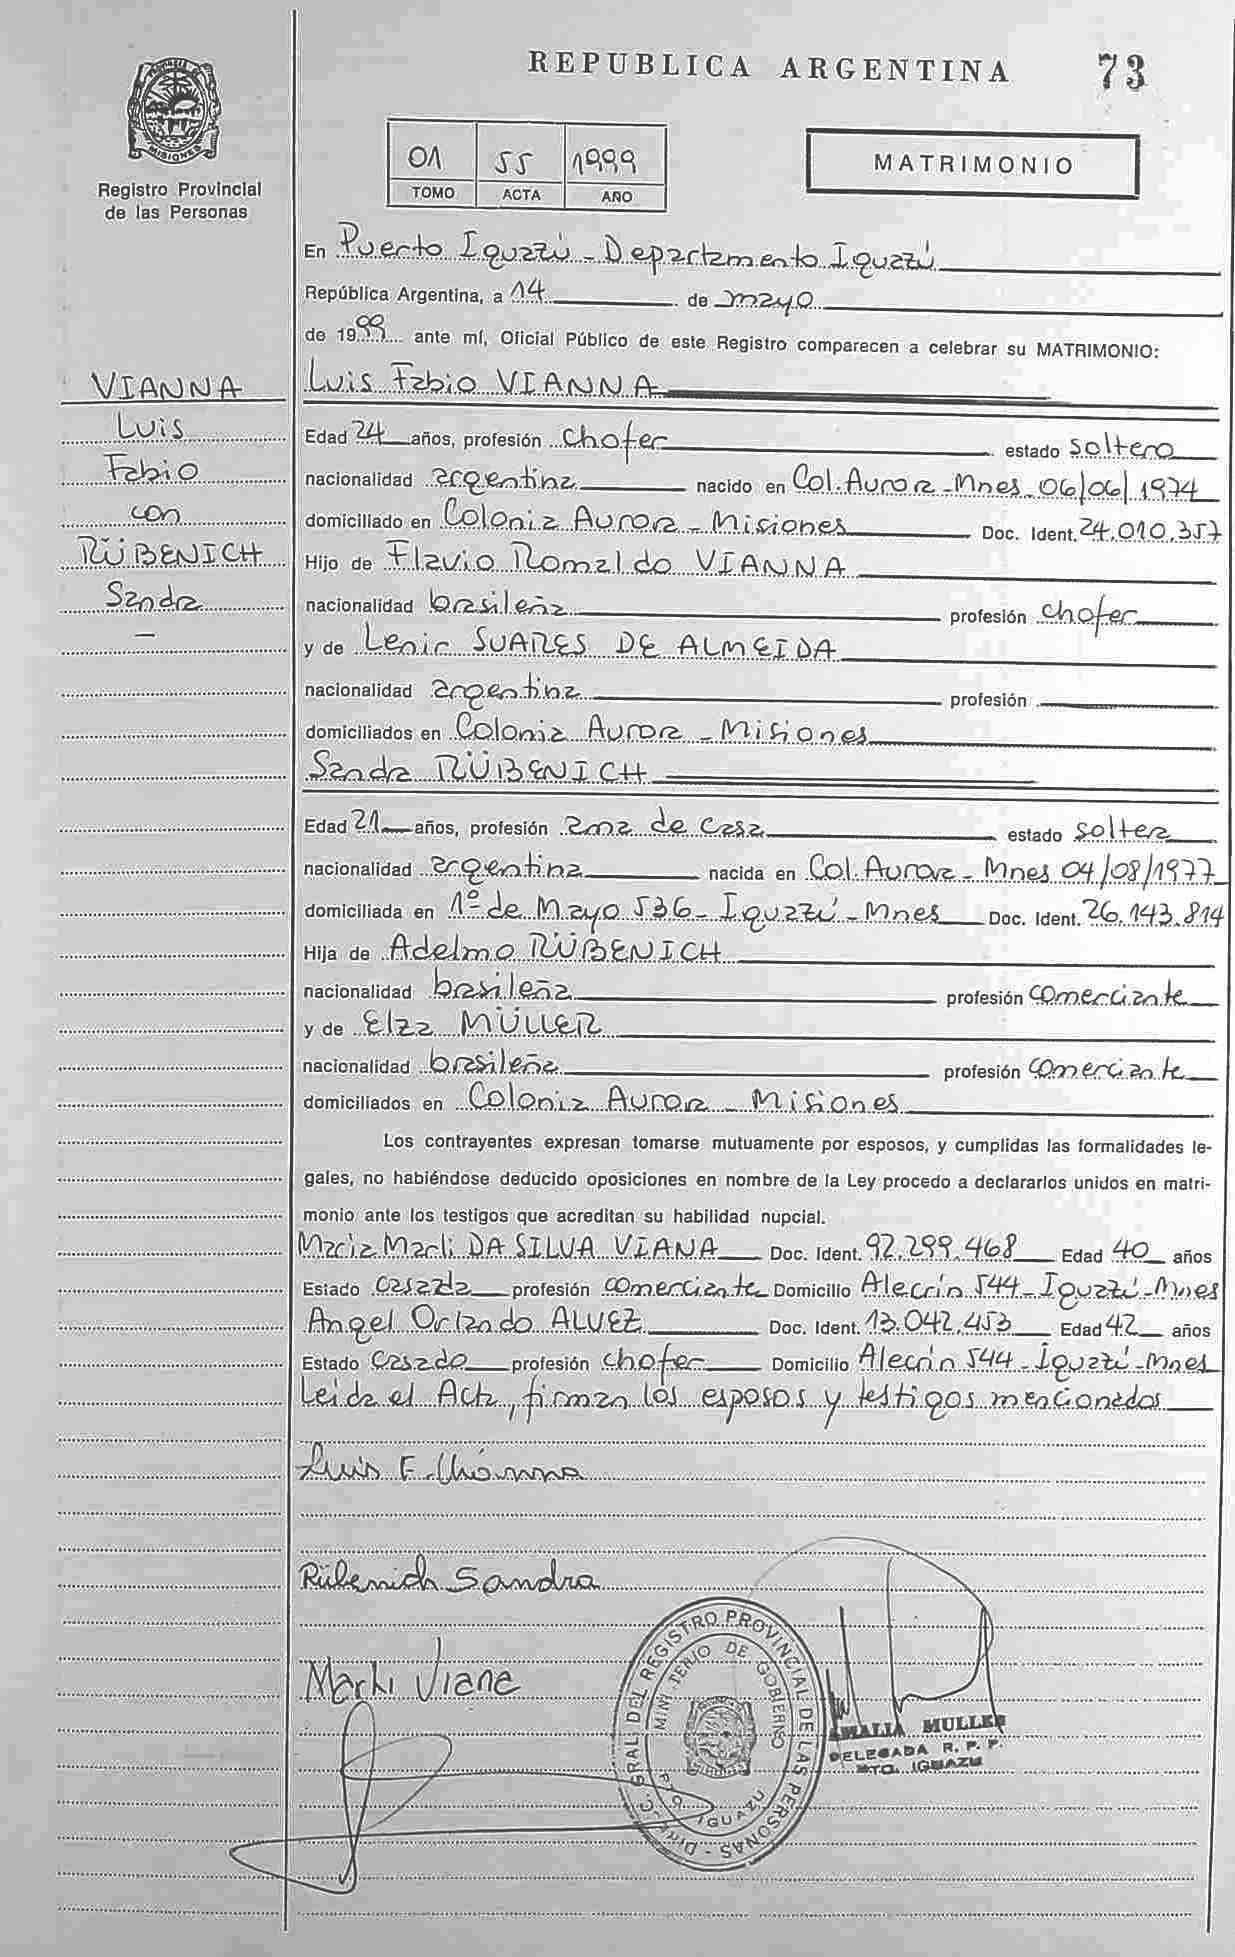 REPUBLICA ARGENTINA
73
PROVINCIA DE MISIONES
Registro Provincial
de las Personas
01 55 1999
TOMO ACTA AÑO
MATRIMONIO
VIANNA
Luis
Fabio
con
RÜBENICH
Sandra
—
En Puerto Iguazú - Departamento Iguazú
República Argentina, a 14 de mayo
de 1999 ante mí, Oficial Público de este Registro comparecen a celebrar su MATRIMONIO:
Luis Fabio VIANNA
Edad 24 años, profesión chofer estado soltero
nacionalidad argentina nacido en Col. Aurora - Mnes 06/06/1974
domiciliado en Colonia Aurora - Misiones Doc. Ident. 24.010.357
Hijo de Flavio Romaldo VIANNA
nacionalidad brasileña profesión chofer
y de Lenir SUARES DE ALMEIDA
nacionalidad argentina profesión
domiciliados en Colonia Aurora - Misiones
Sandra RÜBENICH
Edad 21 años, profesión ama de casa estado soltera
nacionalidad argentina nacida en Col. Aurora - Mnes 04/08/1977
domiciliada en 1º de Mayo 536 - Iguazú - Mnes Doc. Ident. 26.143.814
Hija de Adelmo RÜBENICH
nacionalidad brasileña profesión comerciante
y de Elza MÜLLER
nacionalidad brasileña profesión comerciante
domiciliados en Colonia Aurora - Misiones
Los contrayentes expresan tomarse mutuamente por esposos, y cumplidas las formalidades le-
gales, no habiéndose deducido oposiciones en nombre de la Ley procedo a declararlos unidos en matri-
monio ante los testigos que acreditan su habilidad nupcial.
Maria Marli DA SILVA VIANA Doc. Ident. 92.299.468 Edad 40 años
Estado casada profesión comerciante Domicilio Alecrín 544 - Iguazú - Mnes
Angel Orlando ALVEZ Doc. Ident. 13.042.453 Edad 42 años
Estado casado profesión chofer Domicilio Alecrín 544 - Iguazú - Mnes
Leída el Acta, firman los esposos y testigos mencionados
Luis F. Vianna
Rübenich Sandra
Marli Viana
DIREC. GRAL. DEL REGISTRO PROVINCIAL DE LAS PERSONAS
MINISTERIO DE GOBIERNO
PTO. IGUAZU
AMALIA MULLER
DELEGADA R. P. P.
PTO. IGUAZU